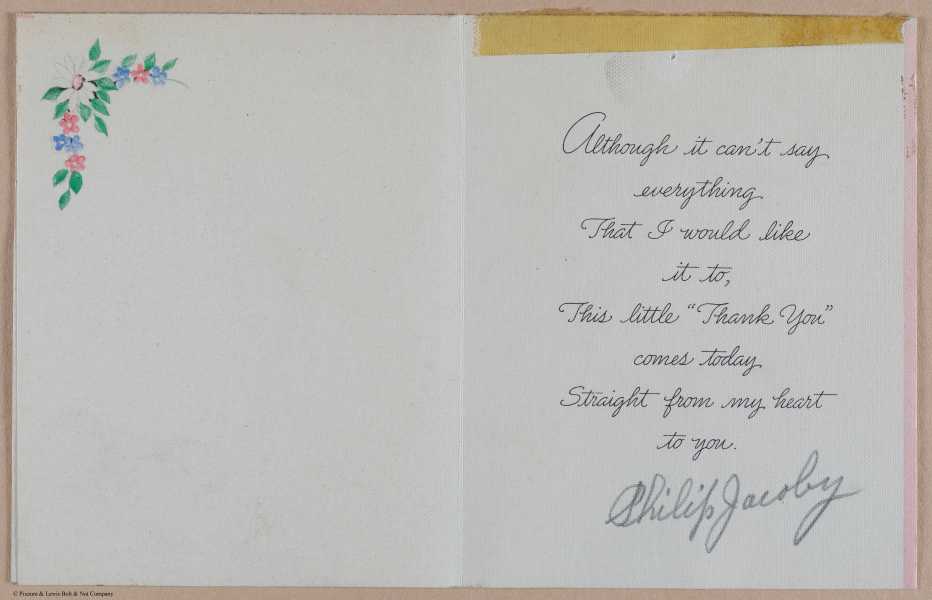 Although it can't say
everything
That I would like
it to,
This little “Thank You”
comes today
Straight from my heart
to you.
Philip Jacoby
© Pixeum & Lewis Bolt & Nut Company